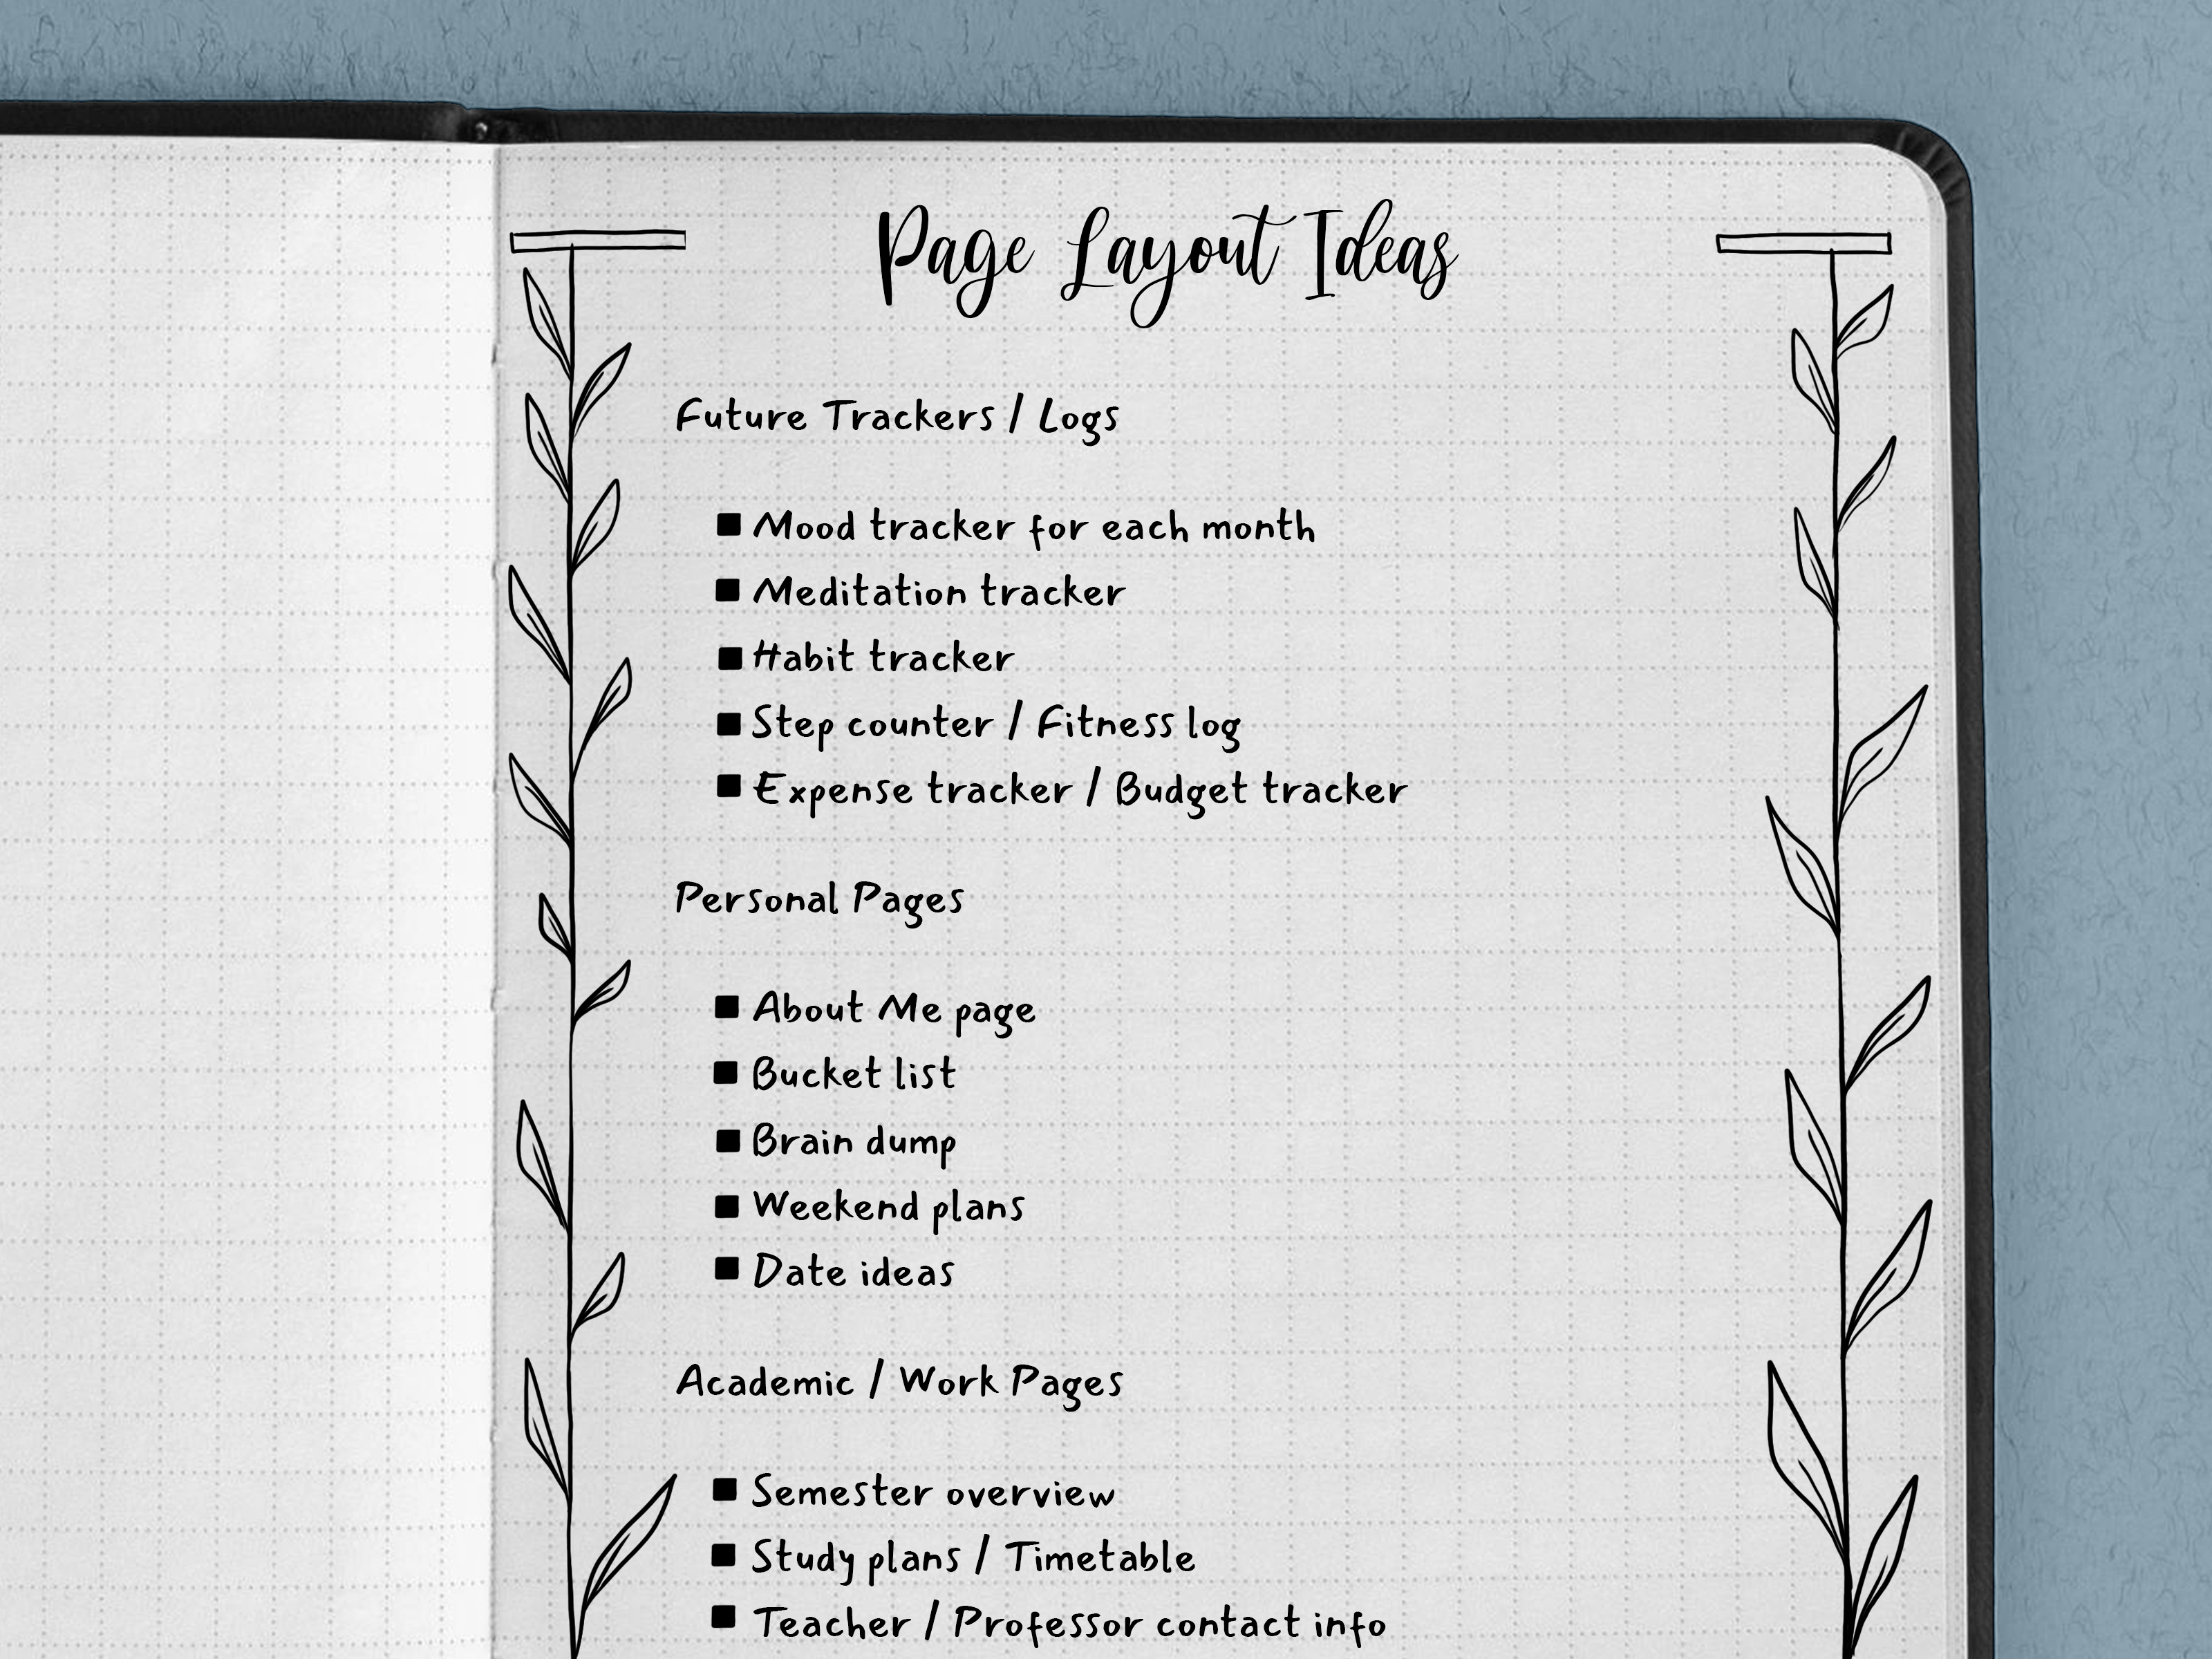 Page Layout Ideas
Future Trackers / Logs
■ Mood tracker for each month
■ Meditation tracker
■ Habit tracker
■ Step counter / Fitness log
■ Expense tracker / Budget tracker
Personal Pages
■ About Me page
■ Bucket list
■ Brain dump
■ Weekend plans
■ Date ideas
Academic / Work Pages
■ Semester overview
■ Study plans / Timetable
■ Teacher / Professor contact info